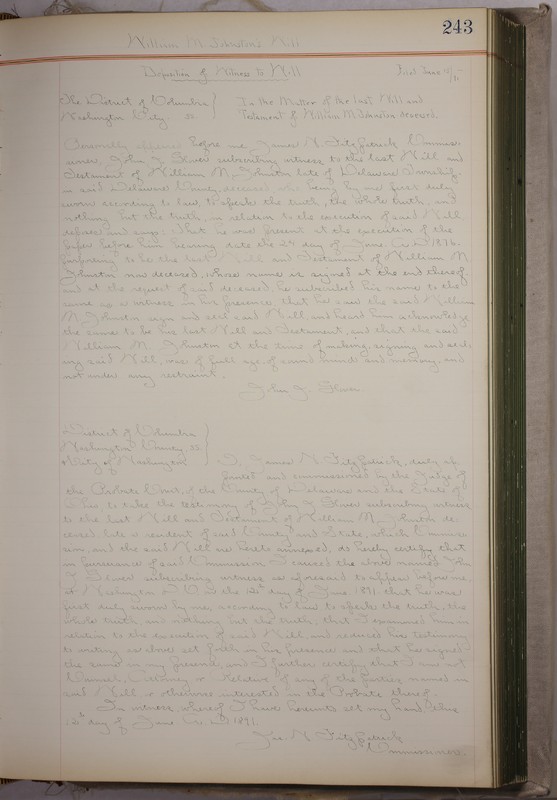 243
William M. Johnston's Will
Deposition of Witness to Will
Filed June
The District of Columbia
Washington City ss
In the Matter of the last Will and
Testament of William M. Johnston deceased.
Personally appeared before me James N. Fitzpatrick Commis-
sioner, John J. Glover subscribing witness to the last Will and
Testament of William M. Johnston late of Delaware Township
in said Delaware County, deceased who being by me first duly
sworn according to law, to speak the truth, the whole truth, and
nothing but the truth, in relation to the execution of said Will
deposes and says: That he was present at the execution of the
paper before him bearing date the day of June A.D. 1876.
purporting to be the last Will and Testament of William M.
Johnston now deceased, whose name is signed at the end thereof
and at the request of said deceased, he subscribed his name to the
same as a witness in his presence that he saw the said William
M. Johnston sign and seal said Will, and heard him acknowledge
the same to be his last Will and Testament, and that the said
William M. Johnston at the time of making, signing and seal-
ing said Will, was of full age, of sound mind and memory, and
not under any restraint.
John J. Glover
District of Columbia
Washington County ss
City of Washington
I, James N. Fitzpatrick, duly ap-
pointed and commissioned by the Judge of
the Probate Court, of the County of Delaware and the State of
Ohio, to take the testimony of John J. Glover subscribing witness
to the last Will and Testament of William M. Johnston de-
ceased, late a resident of said County and State, which Commis-
sion, and the said Will are hereto annexed, do hereby certify that
in pursuance of said Commission I caused the above named John
J. Glover subscribing witness as aforesaid to appear before me
at Washington D.C. the 12th day of June 1891. that he was
first duly sworn by me, according to law to speak the truth, the
whole truth and nothing but the truth, that I examined him in
relation to the execution of said Will, and reduced his testimony
to writing as above set forth in his presence and that he signed
the same in my presence, and I further certify that I am not
Counsel, Attorney or Relative of any of the parties named in
said Will or otherwise interested in the Probate thereof.
In witness whereof I have hereunto set my hand this
12th day of June A.D. 1891.
Jas. N. Fitzpatrick
Commissioner.